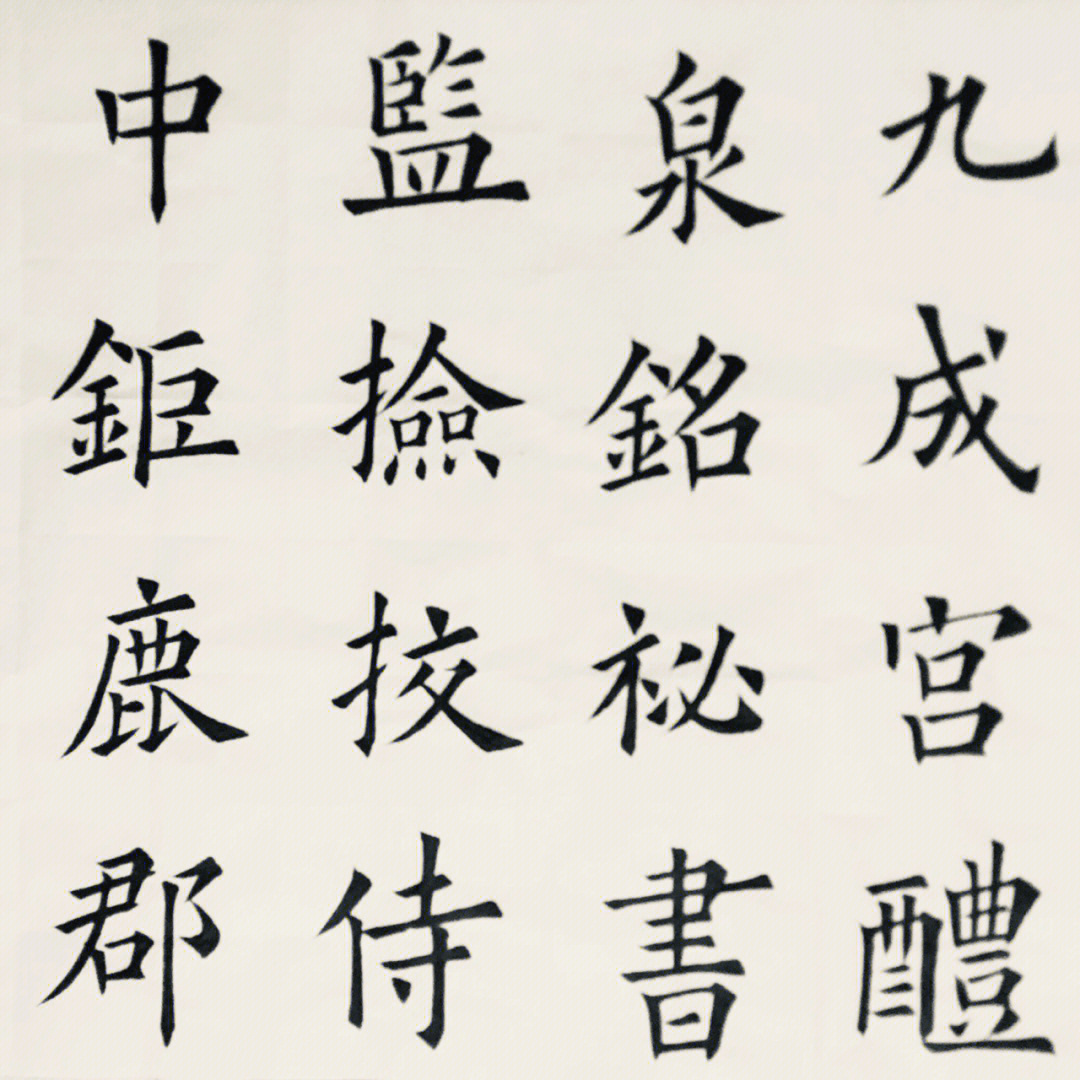 九成宮醴
泉銘祕書
監撿挍侍
中鉅鹿郡